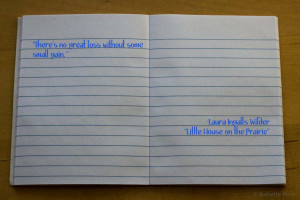 "There's no great loss without some
small gain."
Laura Ingalls Wilder
"Little House on the Prairie"